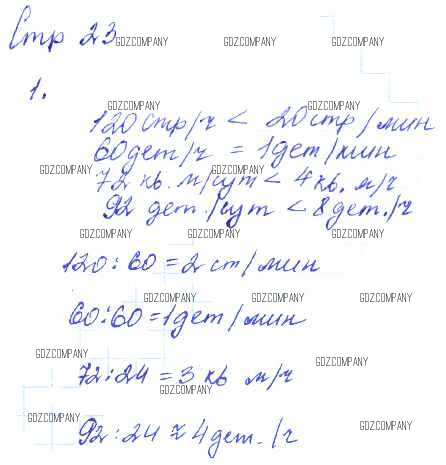 Стр 23
GDZ.COMPANY GDZ.COMPANY GDZ.COMPANY
1.
GDZ.COMPANY GDZ.COMPANY
120 стр/ч < 20 стр/мин
GDZ.COMPANY GDZ.COMPANY
60 дет/ч = 1 дет/мин
GDZ.COMPANY GDZ.COMPANY
72 кв. м/сут < 4 кв. м/ч
92 дет./сут < 8 дет./ч
GDZ.COMPANY GDZ.COMPANY GDZ.COMPANY
120 : 60 = 2 ст/мин
GDZ.COMPANY GDZ.COMPANY GDZ.COMPANY
60 : 60 = 1 дет/мин
GDZ.COMPANY GDZ.COMPANY
72 : 24 = 3 кв м/ч
GDZ.COMPANY
GDZ.COMPANY GDZ.COMPANY
92 : 24 ≈ 4 дет./ч